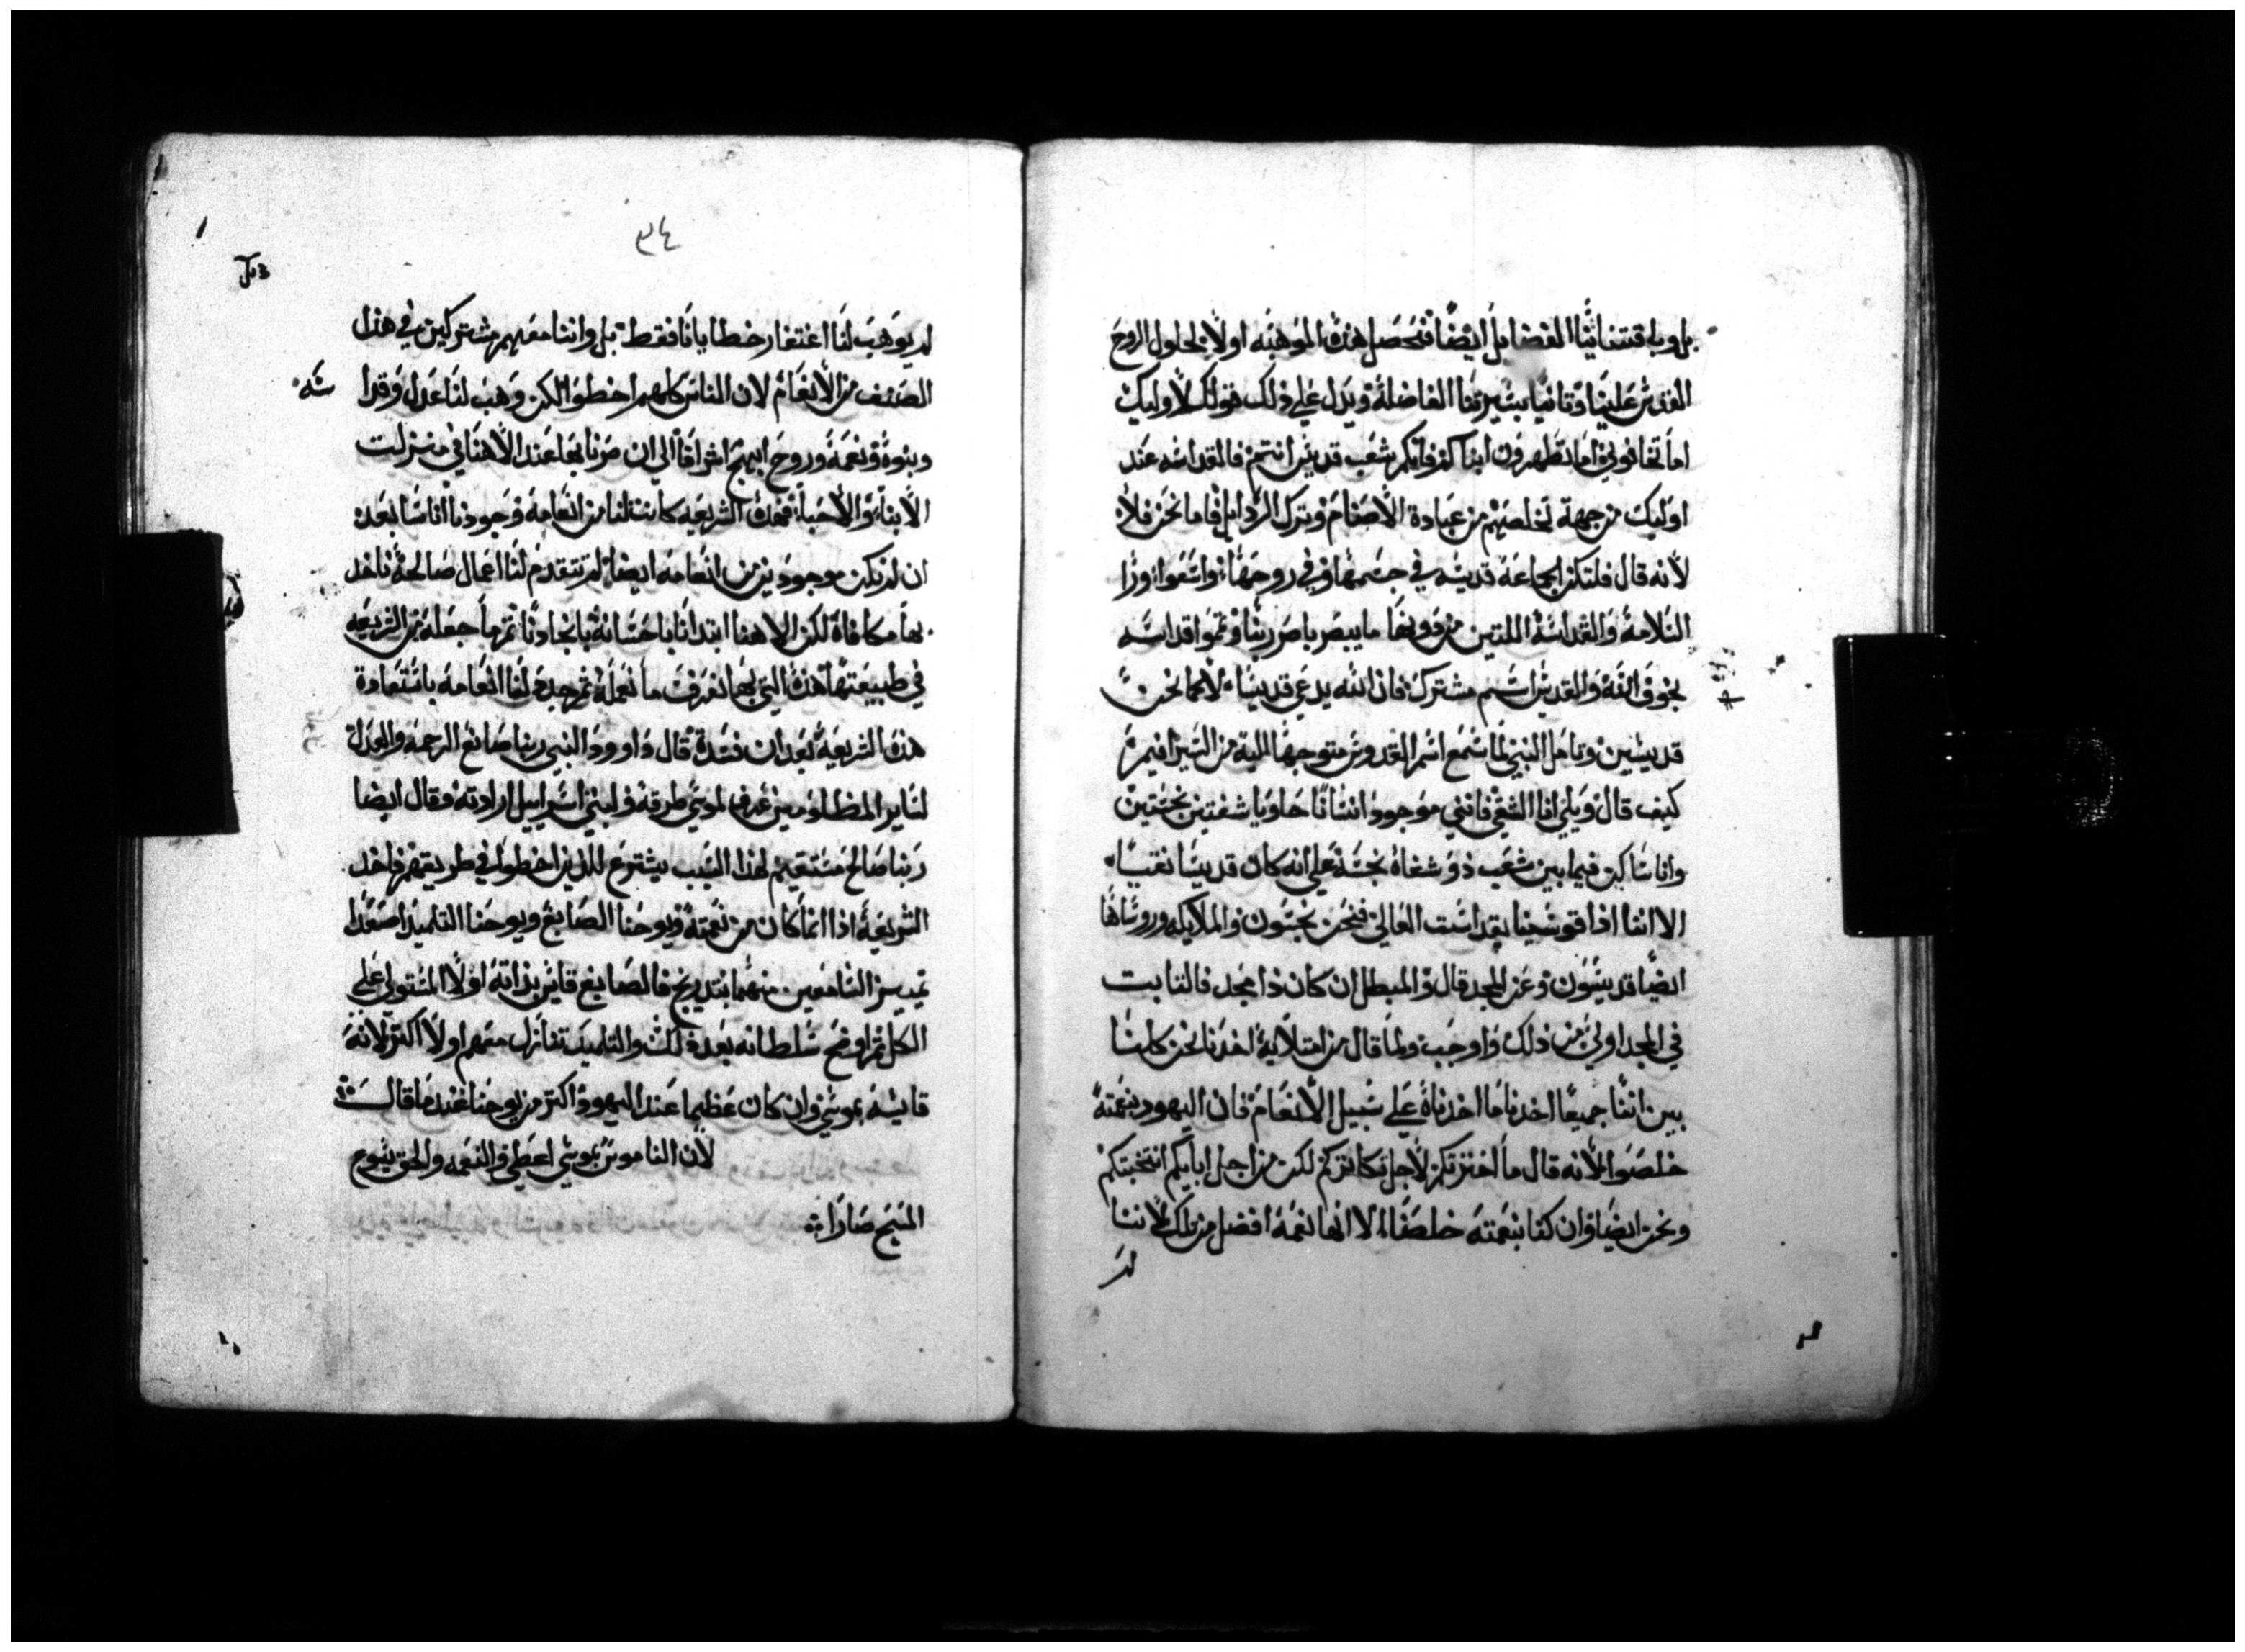 بل وباقتنائنا الفضايل ايضًا فتحصل هذه الموهبه اولًا بحلول الروح
القدس علينا وثانيا بسيرتنا الفاضلة ويدل على ذلك قولك لاوليك
اما تخافوني اما تطهرون ابناكم فانكم شعب قديس انتم فالقداسه عند
اوليك من جهة تخلصهم من عبادة الاصنام وترك الردايل فاما نحن فلا
لانه قال فلتكن الجماعة قديسه في جسمها وفي روحها واسعوا وزا
السلامة والقداسة اللتين من دونهما ما يبصر باصر ربنا وتموا قداسه
بخوف الله والقديس اسم مشترك فان الله يدعي قديسا لا كما نحن
قديسين وتامل النبي لما سمع اسم القدوس متوجها اليه من السيرافيم
كيف قال ويلي انا الشقي فانني موجود انسانا حاويا شفتين نجستين
وانا ساكن فيما بين شعب ذو شفاه نجسة على انه كان قديسا نقيا
الا اننا اذا قويسنا بقداست العالي فنحن نجسون والملايكه وروساها
ايضًا قديسون وعن المجد قال والمبطل ان كان ذا مجد فالثابت
في المجد اولي من ذلك واوجب ولما قال من امتلايه اخدنا نحن كلنا
بين اننا جميعًا اخدنا ما اخدناه على سبيل الانعام فان اليهود بنعمته
خلصوا لانه قال ما اخترتكم لاجل تكاثركم لكن من اجل ابايكم انتخبتكم
ونحن ايضا وان كنا بنعمته خلصنا الا انها نعمة افضل من تلك لاننا
لم
٣٤
لم يوهب لنا اغتفار خطايانا فقط بل واننا معهم مشتركين في هذا
الصنف من الانعام لان الناس كلهم اخطوا لكن وهب لنا عدل وقدا
سه
وبنوة ونعمة وروح ابهج اشراقا الي ان صرنا بها عند الاهنا في منزلت
الابناء والاحباء فهذه الشريعه كانت لنا من انعامه وجودنا اناسا بعد
ان لم نكن موجودين من انعامه ايضا لم تتقدم لنا اعمال صالحة ناخد
بها مكافاة لكن الاهنا ابتدانا باحسانه بايجادنا ثم ما جعله من الشريعه
في طبيعتنا هذه التي بها نعرف ما نعمله ثم جدد لنا انعامه باستعادة
هذه الشريعة بعد ان فسدة قال داوود النبي ربنا صانع الرحمة والعدل
لساير المظلومين عرف لموسي طرقه ولبني اسراييل ارادته وقال ايضا
ربنا صالح مستقيم لهذا السبب يشترع للذين اخطوا في طريقهم فاخد
الشريعة اذا انما كان من نعمته ويوحنا الصابغ ويوحنا التلميذ اصعدا
تمييز السامعين منهما بتدريج فالصابغ قايس بذاته اولًا المستولي على
الكل ثم اوضح سلطانه بعد ذلك والتلميذ تنازل معهم اولا اكثر لانه
قايسه بموسي وان كان عظيما عند اليهود اكثر من يوحنا عند ما قال
لان الناموس بموسي اعطي والنعمه والحق يسوع
المسيح صارا